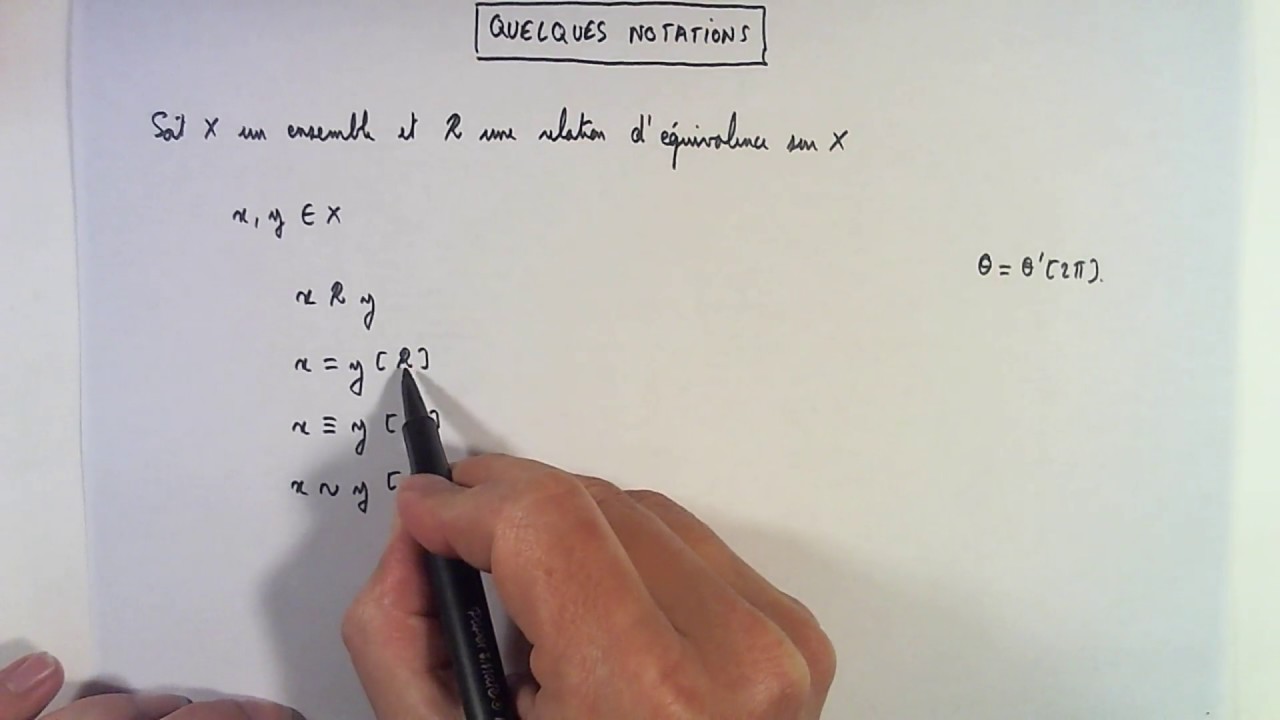 QUELQUES NOTATIONS
Soit X un ensemble et R une relation d'équivalence sur X
x, y ∈ X
θ = θ'[2π].
x R y
x = y [R]
x ≡ y [ ]
x ~ y [